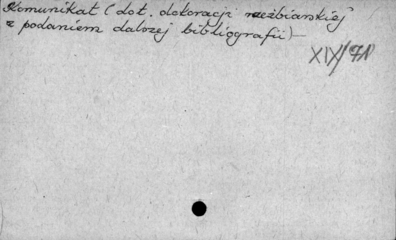 Komunikat (dot. dekoracji rzeźbiarskiej
z podaniem dalszej bibliografii)—
XIX/71